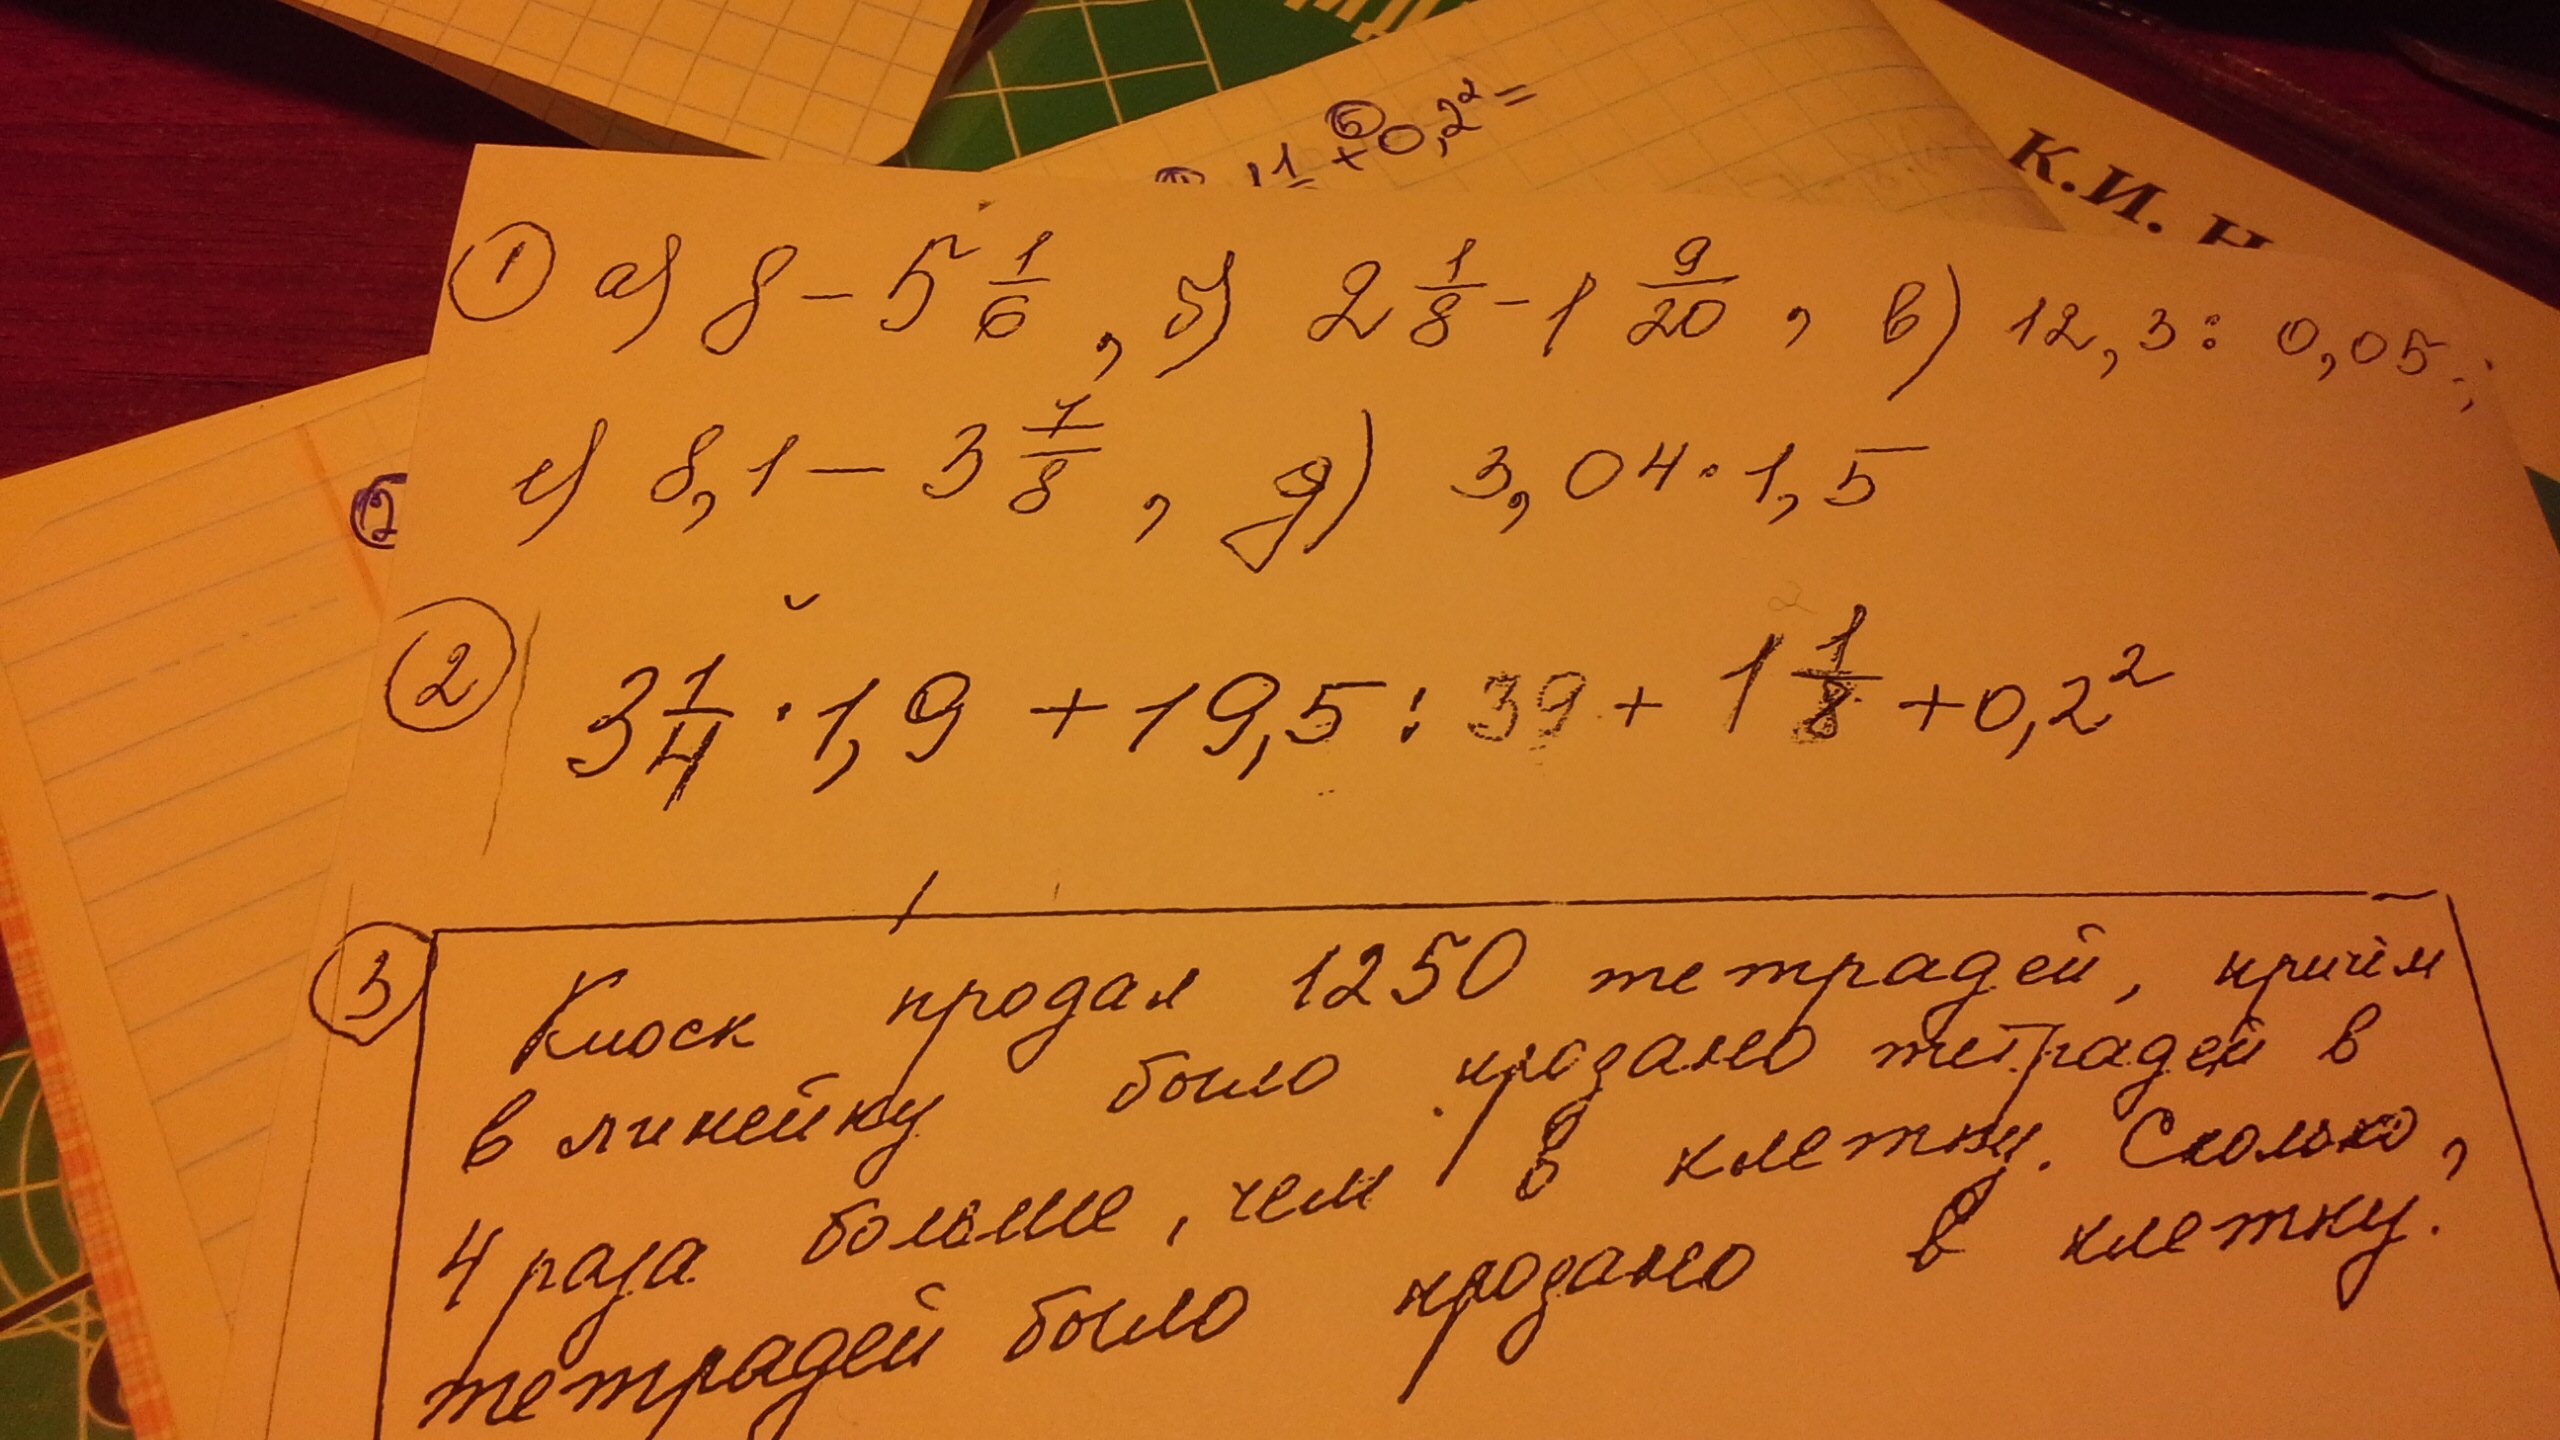 + 0,2² =
К.И. Н
① а) 8 - 5 1/6 , б) 2 1/8 - 1 9/20 , в) 12,3 : 0,05 ;
г) 8,1 - 3 7/8 , д) 3,04 · 1,5
② 3 1/4 · 1,9 + 19,5 : 39 + 1 1/8 + 0,2²
③ Киоск продал 1250 тетрадей, причём
в линейку было продано тетрадей в
4 раза больше, чем в клетку. Сколько
тетрадей было продано в клетку?